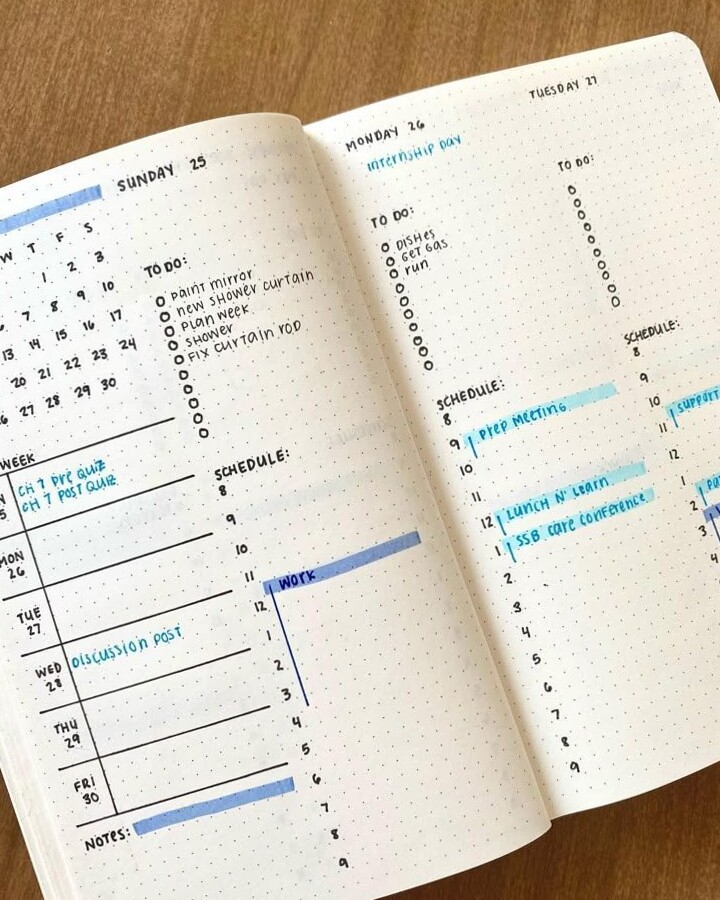 SUNDAY 25
W T F S
1 2 3
7 8 9 10
13 14 15 16 17
20 21 22 23 24
27 28 29 30
WEEK
CH 7 Pre QUIZ
CH 7 POST QUIZ
MON
26
TUE
27
WED
28
DISCUSSION POST
THU
29
FRI
30
NOTES:
TO DO:
PAINT MIRROR
NEW SHOWER CURTAIN
PLAN WEEK
SHOWER
FIX CURTAIN ROD
SCHEDULE:
8
9
10
11
WORK
12
1
2
3
4
5
6
7
8
9
MONDAY 26
INTERNSHIP DAY
TO DO:
DISHES
GET GAS
RUN
SCHEDULE:
8
9 PREP MEETING
10
11
12 LUNCH N' LEARN
1 SSB CARE CONFERENCE
2
3
4
5
6
7
8
9
TUESDAY 27
TO DO:
SCHEDULE:
8
9
10
11
12
1
2
3
4